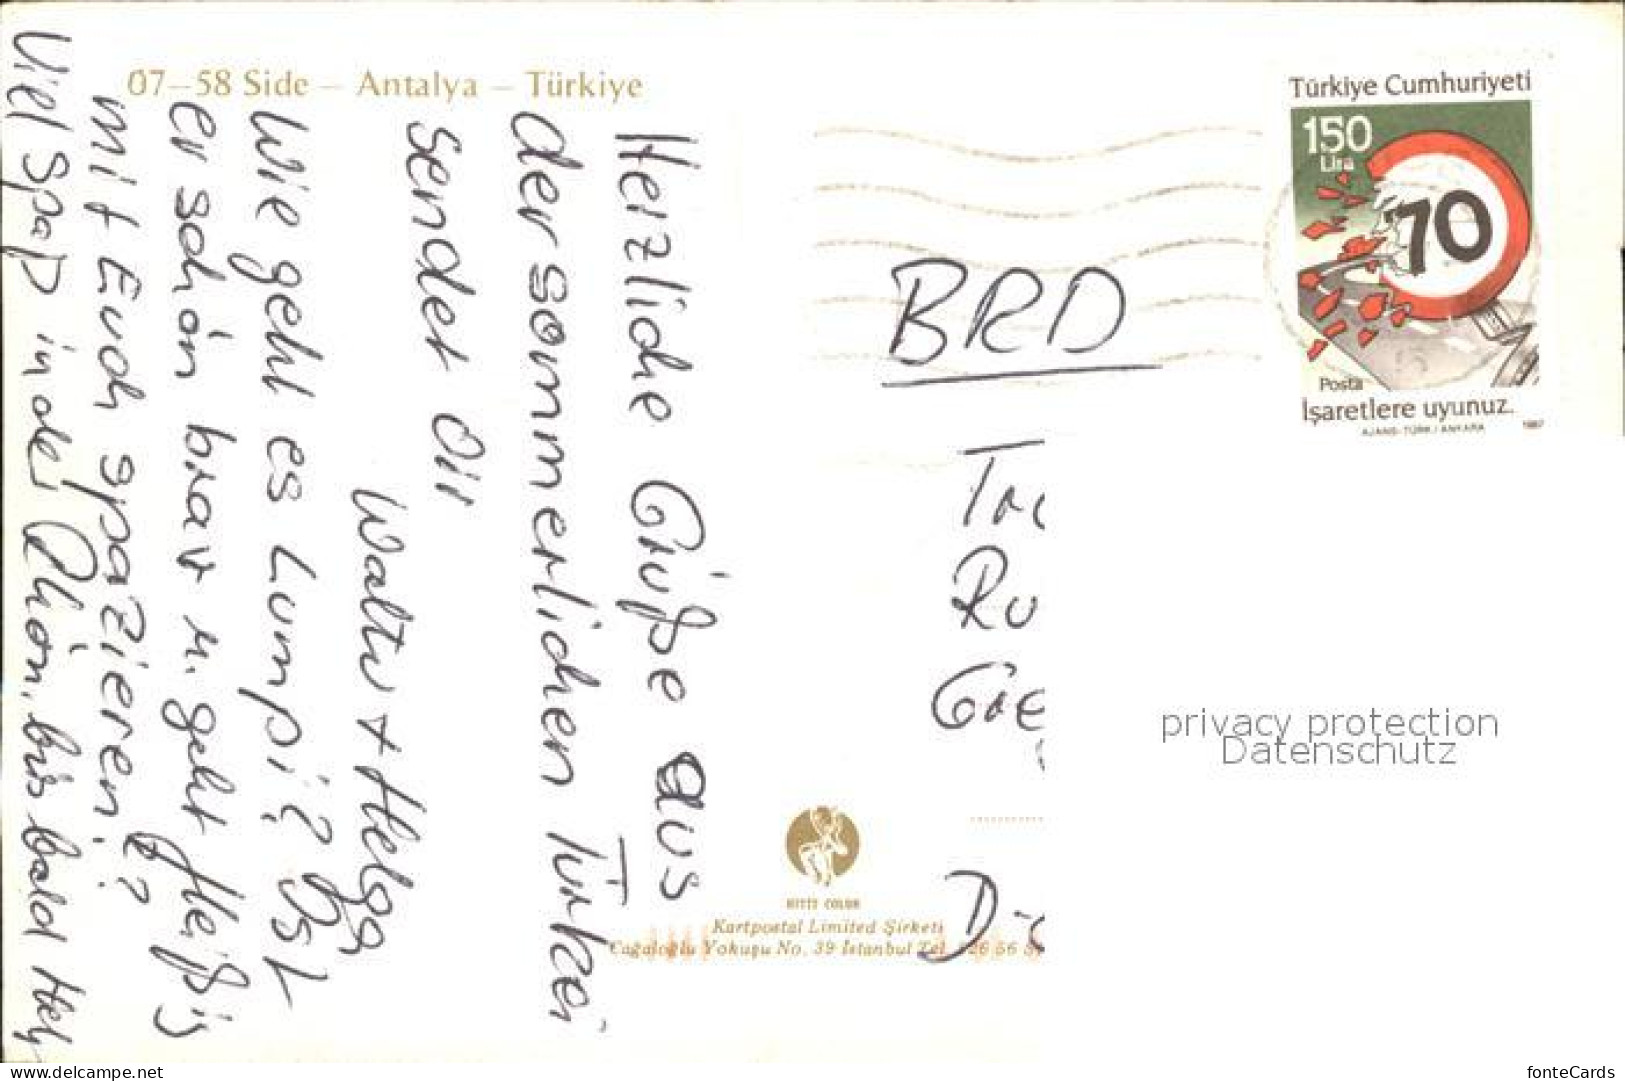 07–58 Side – Antalya – Türkiye
Herzliche Grüße aus
der sommerlichen Türkei
sendet Dir
Walter + Helga
Wie geht es Lumpi? Ist
er schön brav u. geht fleißig
mit Euch spazieren?
Viel Spaß in der Rhön, bis bald Helg
Türkiye Cumhuriyeti
150
Lira
70
Posta
İşaretlere uyunuz.
AJANS-TÜRK / ANKARA 1987
BRD
Ru
privacy protection
Datenschutz
KEŞKİN COLOR
Kartpostal Limited Şirketi
Cağaloğlu Yokuşu No. 39 İstanbul Tel. 526 56
delcampe.net
fonteCards